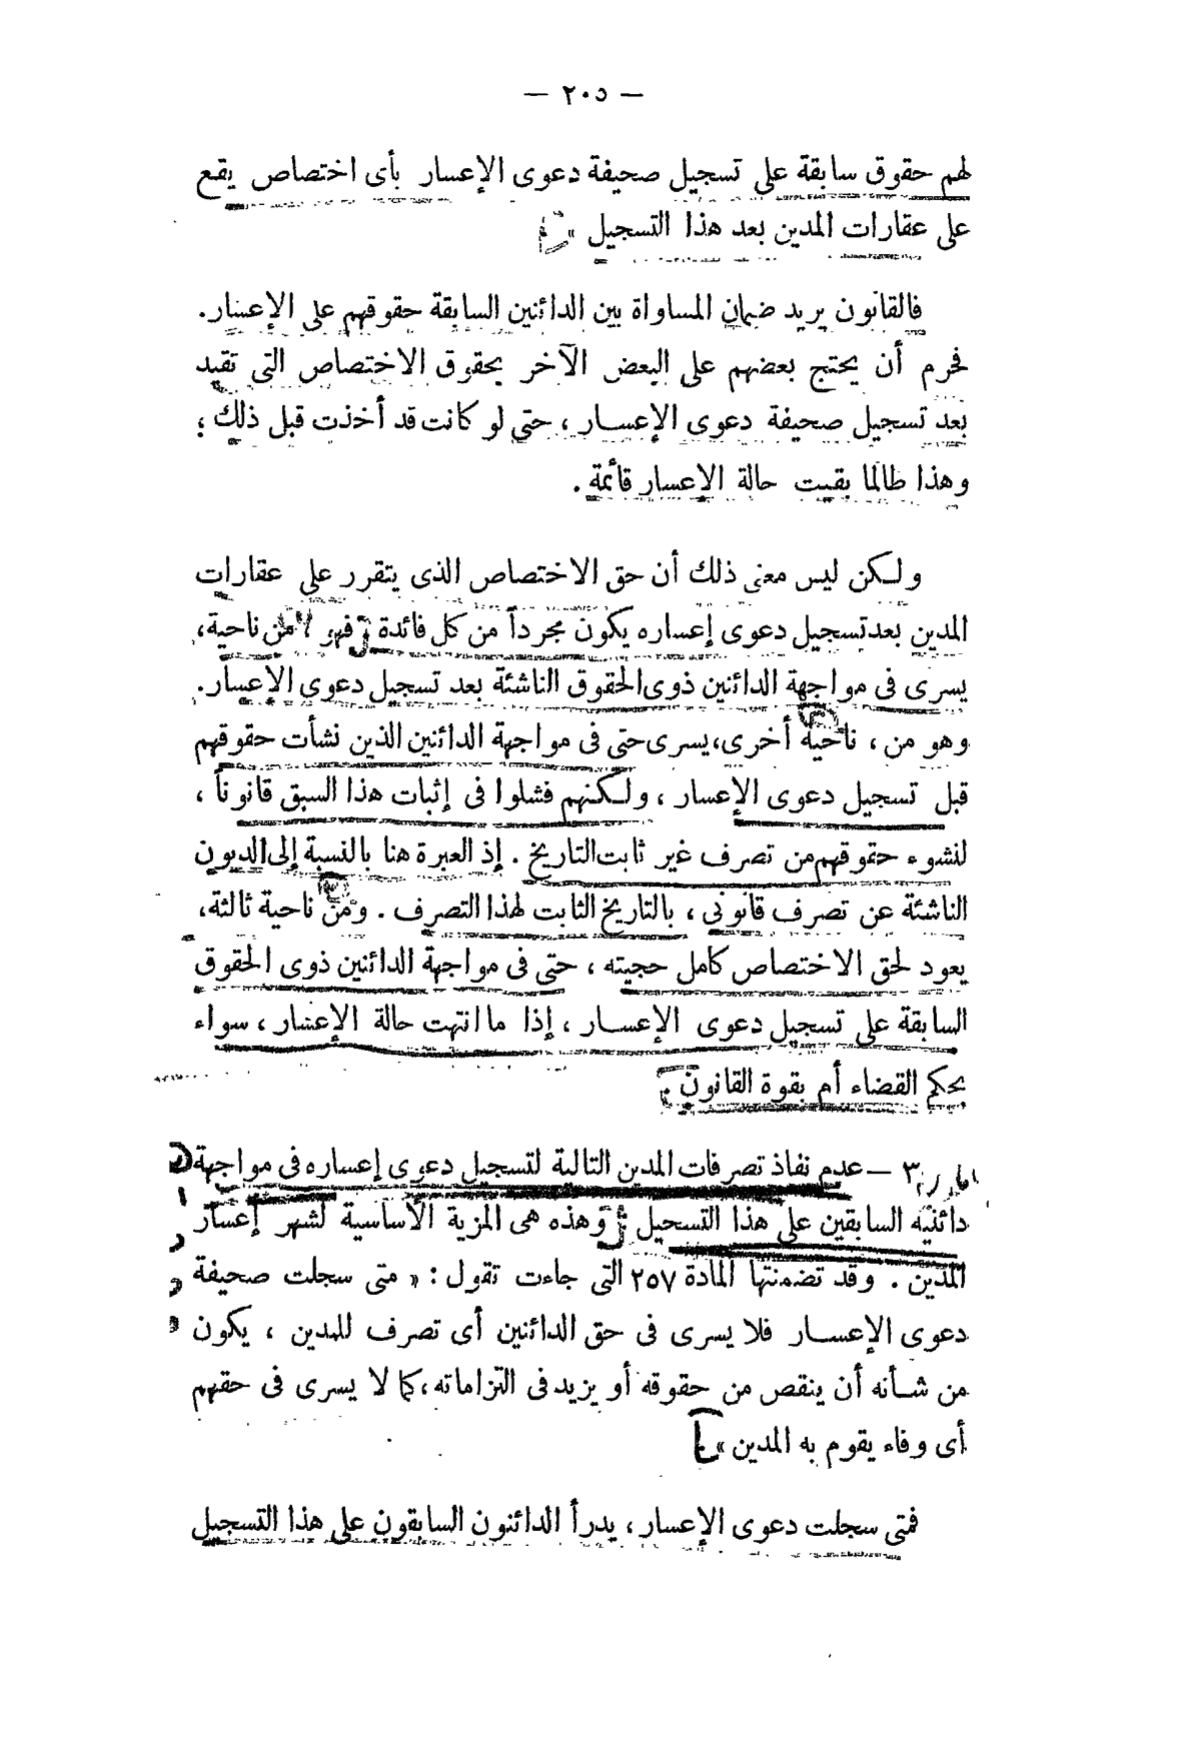 — ٢٠٥ —
لهم حقوق سابقة على تسجيل صحيفة دعوى الإعسار بأى اختصاص يقع
على عقارات المدين بعد هذا التسجيل »
فالقانون يريد ضمان المساواة بين الدائنين السابقة حقوقهم على الإعسار.
فحرم أن يحتج بعضهم على البعض الآخر بحقوق الاختصاص التى تقيد
بعد تسجيل صحيفة دعوى الإعسار ، حتى لو كانت قد أخذت قبل ذلك ؛
وهذا طالما بقيت حالة الإعسار قائمة .
ولكن ليس معنى ذلك أن حق الاختصاص الذى يتقرر على عقارات
المدين بعد تسجيل دعوى إعساره يكون مجرداً من كل فائدة . فهو ، من ناحية،
يسرى فى مواجهة الدائنين ذوى الحقوق الناشئة بعد تسجيل دعوى الإعسار.
وهو من ، ناحية أخرى، يسرى حتى فى مواجهة الدائنين الذين نشأت حقوقهم
قبل تسجيل دعوى الإعسار ، ولكنهم فشلوا فى إثبات هذا السبق قانوناً ،
لنشوء حقوقهم من تصرف غير ثابت التاريخ . إذ العبرة هنا بالنسبة إلى الديون
الناشئة عن تصرف قانونى ، بالتاريخ الثابت لهذا التصرف . ومن ناحية ثالثة،
يعود لحق الاختصاص كامل حجيته ، حتى فى مواجهة الدائنين ذوى الحقوق
السابقة على تسجيل دعوى الإعسار ، إذا ما انتهت حالة الإعسار ، سواء
بحكم القضاء أم بقوة القانون .
٣ – عدم نفاذ تصرفات المدين التالية لتسجيل دعوى إعساره فى مواجهة
دائنيه السابقين على هذا التسجيل : وهذه هى المزية الأساسية لشهر إعسار
المدين . وقد تضمنتها المادة ٢٥٧ التى جاءت تقول : « متى سجلت صحيفة
دعوى الإعسار فلا يسرى فى حق الدائنين أى تصرف للمدين ، يكون
من شأنه أن ينقص من حقوقه أو يزيد فى التزاماته، كما لا يسرى فى حقهم
أى وفاء يقوم به المدين » .
فمتى سجلت دعوى الإعسار ، يدرأ الدائنون السابقون على هذا التسجيل